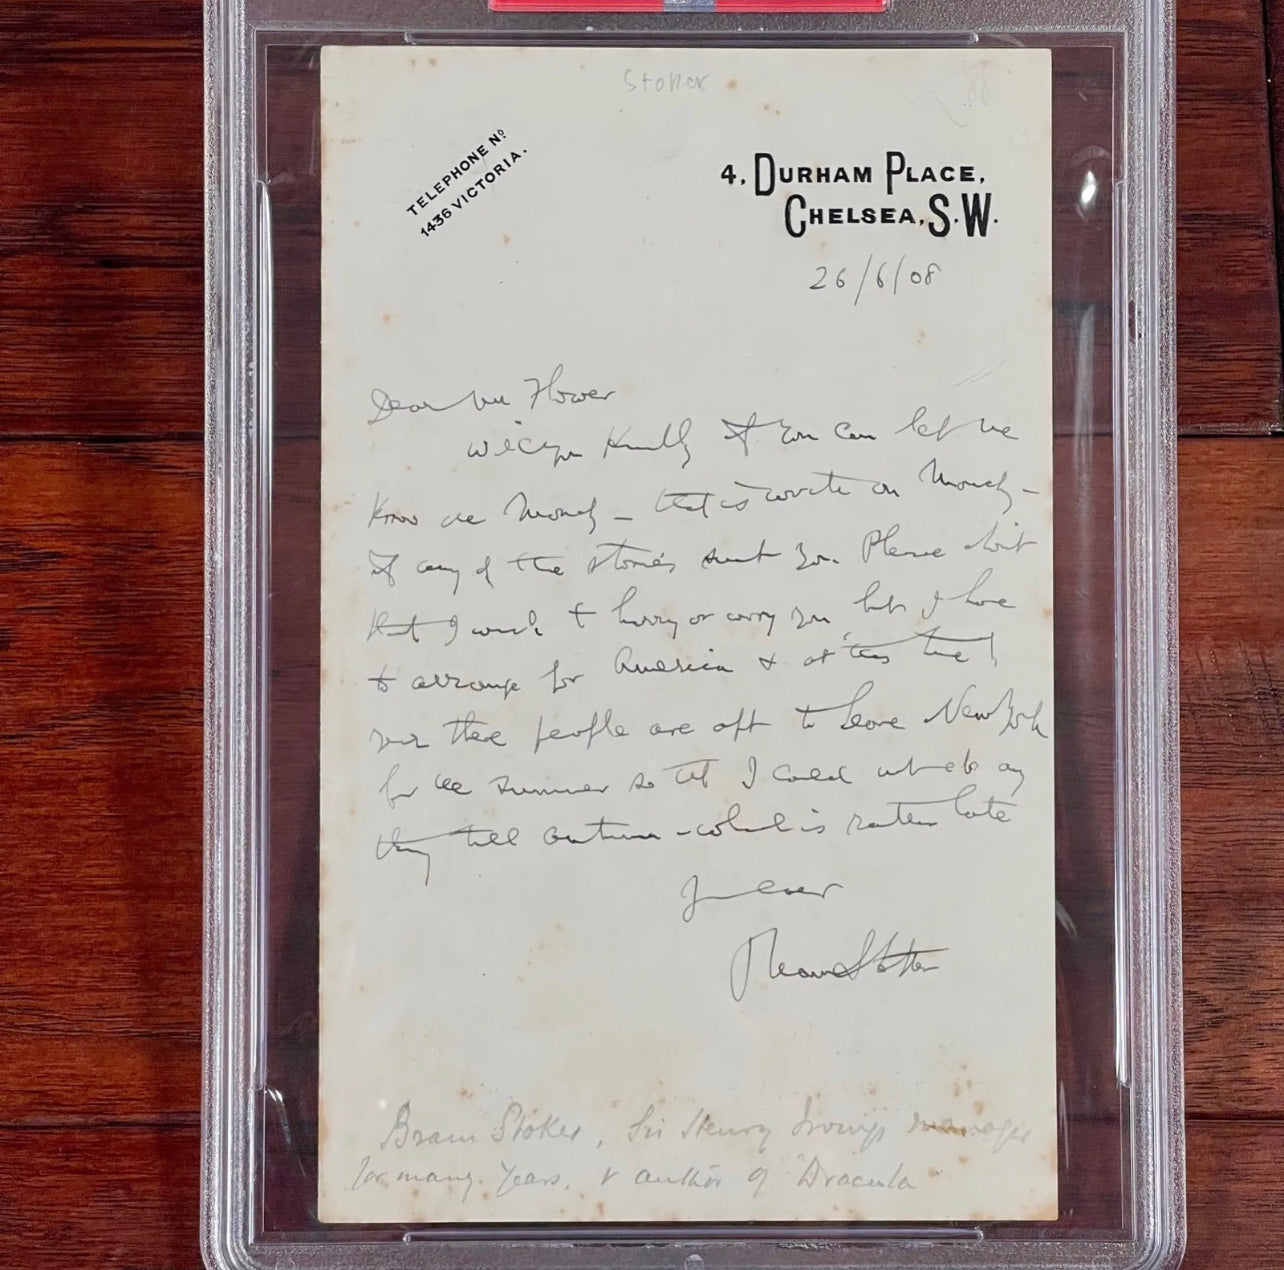 Stoker
TELEPHONE Nº
1436 VICTORIA.
4, DURHAM PLACE,
CHELSEA, S.W.
26/6/08
Dear Mr Flower
Will you kindly if you can let me
know on Monday – that is write on Monday –
if any of the stories suit you. Please don't
that I wish to hurry or worry you, but I have
to arrange for America & at this time
year these people are apt to leave New York
for the summer so that I could not do any
thing till autumn – which is rather late
Yours ever
Bram Stoker
Bram Stoker, Sir Henry Irving's manager
for many years, & author of "Dracula